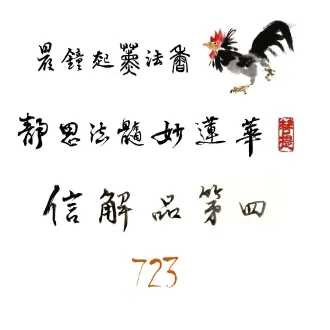 晨鐘起薰法香
靜思法髓妙蓮華
菩提
信解品第四
723